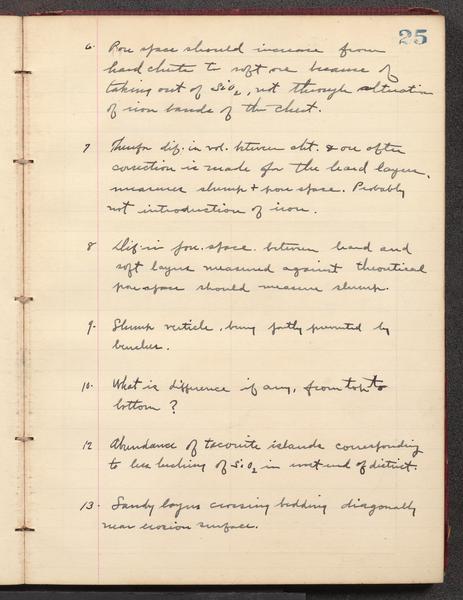 25
6. Pore space should increase from
hard cherte to soft ore because of
taking out of SiO2, not through alteration
of iron bands of the chert.
7 Therefor dif. in vol. between alt. & ore after
correction is made for the hard layers,
measures slump + pore space. Probably
not introduction of iron.
8 Dif. in pore space between hard and
soft layers measured against theoretical
pore space should measure slump.
9. Slump verticle, being partly prevented by
benches.
10. What is difference if any, from top to
bottom?
12 Abundance of taconite islands corresponding
to less leaching of SiO2 in west end of district.
13. Sandy layers crossing bedding diagonally
near erosion surface.